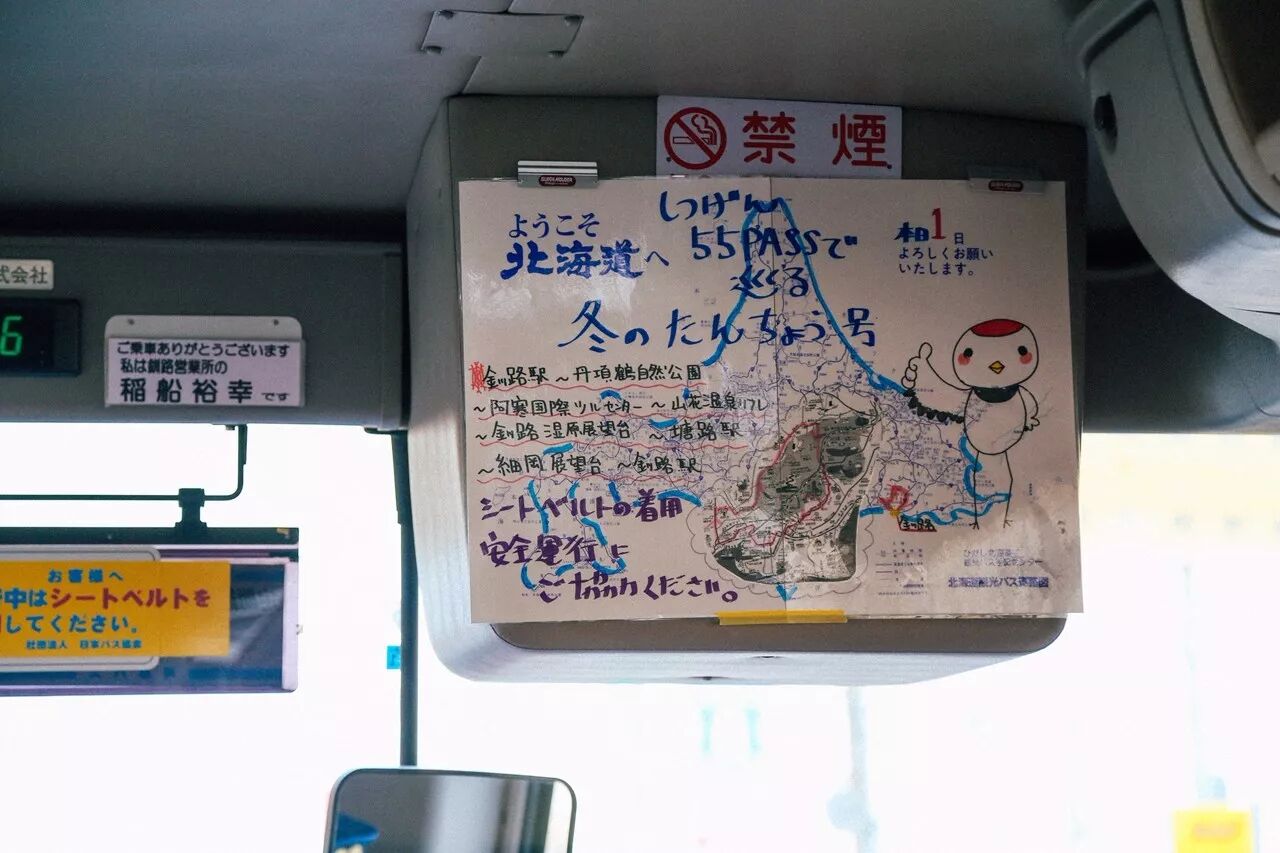 禁煙
ようこそ
北海道へ
しつげん
55PASSで
巡る
冬のたんちょう号
本日1日
よろしくお願い
いたします。
釧路駅～丹頂鶴自然公園
～阿寒国際ツルセンター～山花温泉リフレ
～釧路湿原展望台～塘路駅
～細岡展望台～釧路駅
シートベルトの着用
安全運行に
ご協力ください。
釧路
式会社
6
ご乗車ありがとうございます
私は釧路営業所の
稲船裕幸です
お客様へ
中はシートベルトを
してください。
社団法人 日本バス協会